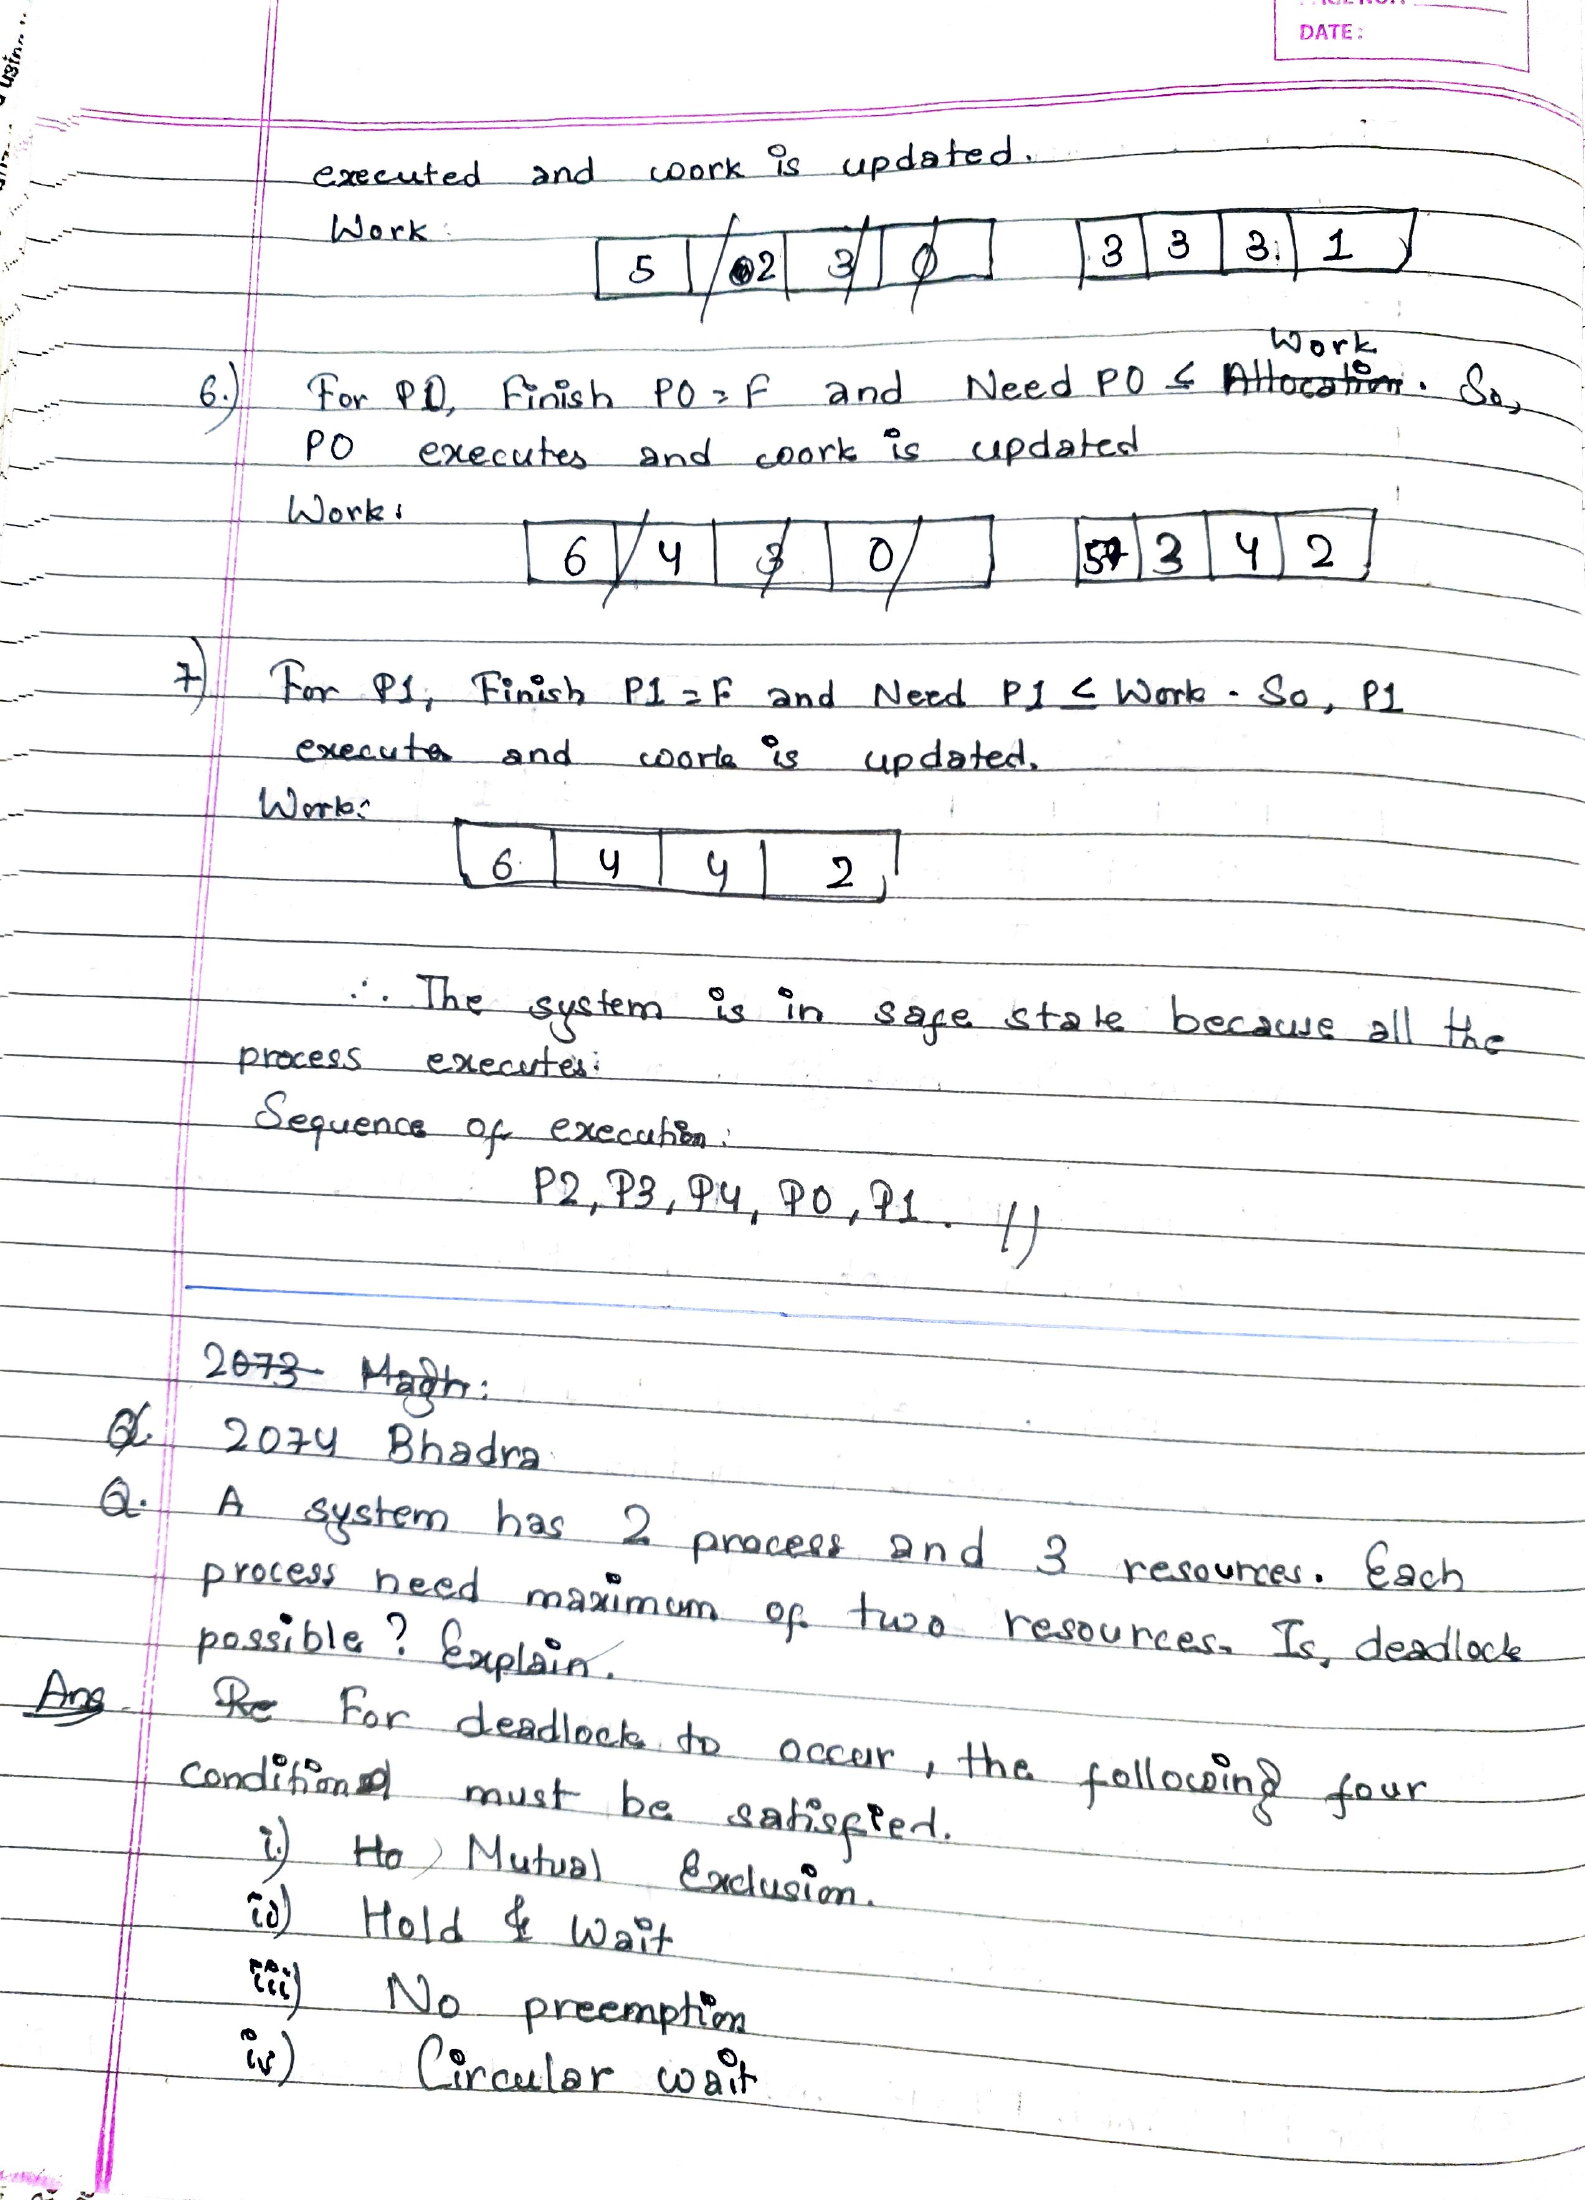 DATE:
executed and work is updated.
Work: 5 2 3 0 3 3 3 1
Work
6.) For P0, Finish P0 = F and Need P0 ≤ Allocation. So,
P0 executes and work is updated
Work: 6 4 3 0 3 4 2
7) For P1, Finish P1 = F and Need P1 ≤ Work. So, P1
executes and work is updated.
Work:
6 4 4 2
∴ The system is in safe state because all the
process executes:
Sequence of execution:
P2, P3, P4, P0, P1.
2073 Magh:
Q. 2074 Bhadra
Q. A system has 2 process and 3 resources. Each
process need maximum of two resources. Is, deadlock
possible? Explain.
Ans. Re For deadlock to occur, the following four
condition must be satisfied.
i) Ho Mutual Exclusion.
ii) Hold & Wait
iii) No preemption
iv) Circular wait